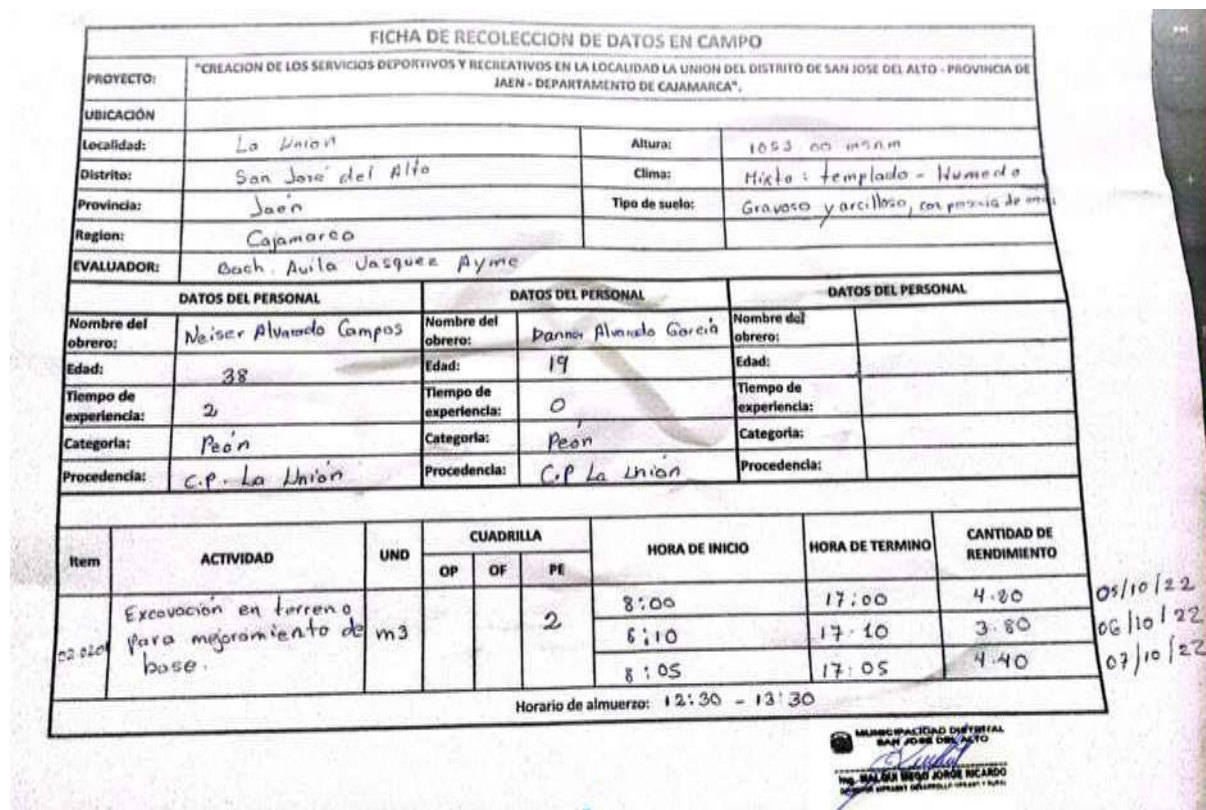 FICHA DE RECOLECCION DE DATOS EN CAMPO
PROYECTO: "CREACION DE LOS SERVICIOS DEPORTIVOS Y RECREATIVOS EN LA LOCALIDAD LA UNION DEL DISTRITO DE SAN JOSE DEL ALTO - PROVINCIA DE
JAEN - DEPARTAMENTO DE CAJAMARCA".
UBICACIÓN
Localidad: La Unión Altura: 1053.00 msnm
Distrito: San José del Alto Clima: Mixto: templado - Humedo
Provincia: Jaén Tipo de suelo: Gravoso y arcilloso, con de
Region: Cajamarca
EVALUADOR: Bach. Avila Vasquez Ayme
DATOS DEL PERSONAL DATOS DEL PERSONAL DATOS DEL PERSONAL
Nombre del obrero: Neiser Alvarado Campos Nombre del obrero: Alvarado García Nombre del obrero:
Edad: 38 Edad: 19 Edad:
Tiempo de experiencia: 2 Tiempo de experiencia: 0 Tiempo de experiencia:
Categoria: Peón Categoria: Peón Categoria:
Procedencia: C.P. La Unión Procedencia: C.P La Unión Procedencia:
Item ACTIVIDAD UND CUADRILLA HORA DE INICIO HORA DE TERMINO CANTIDAD DE RENDIMIENTO
OP OF PE
Excavación en terreno 8:00 17:00 4.80 05/10/22
para mejoramiento de m3 2 8:10 17:10 3.80 06/10/22
base. 8:05 17:05 4.40 07/10/22
Horario de almuerzo: 12:30 - 13:30
MUNICIPALIDAD DISTRITAL
SAN JOSE DEL ALTO
JORGE RICARDO